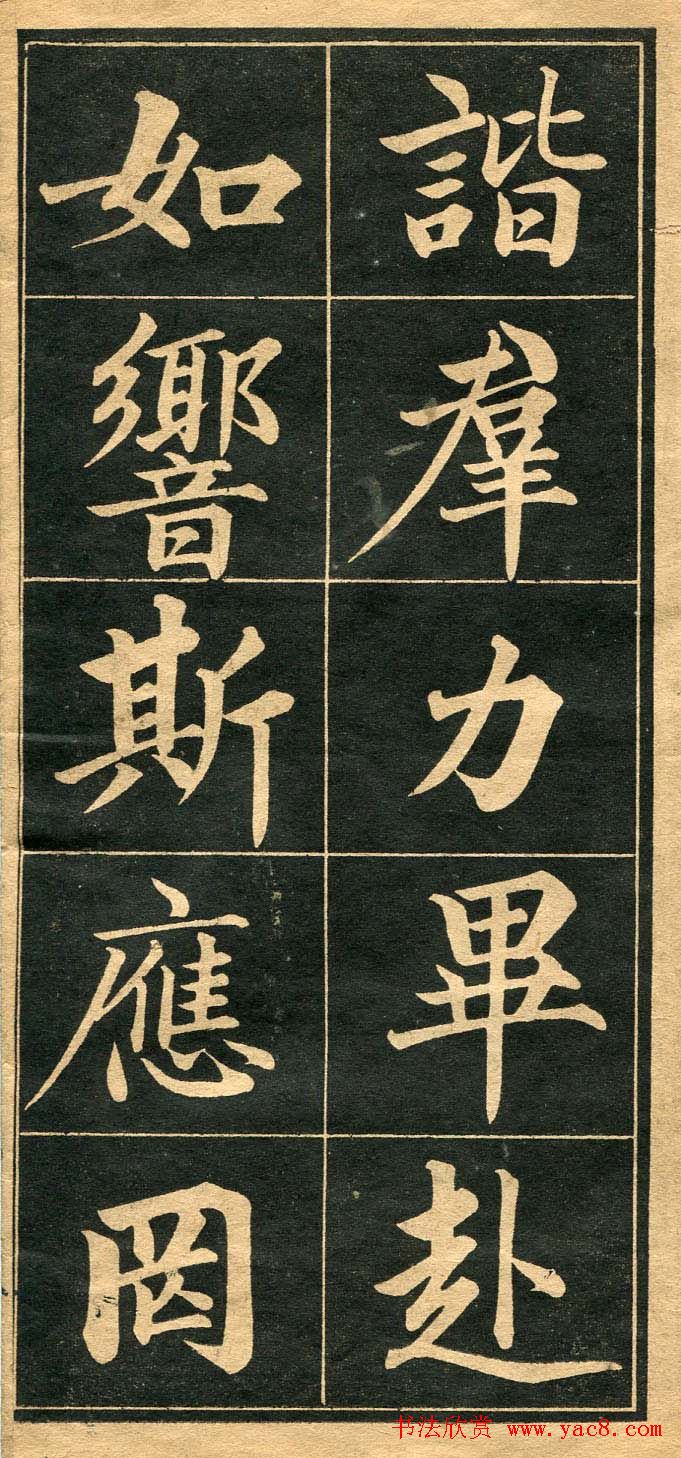 諧羣力畢赴
如響斯應罔
书法欣赏 www.yac8.com